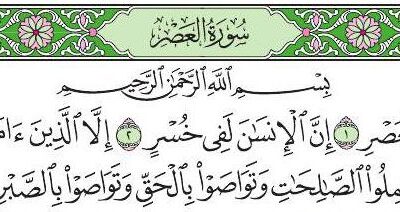 سُورَةُ الْعَصْرِ
بِسْمِ اللَّهِ الرَّحْمَٰنِ الرَّحِيمِ
صْرِ ١ إِنَّ الْإِنسَانَ لَفِي خُسْرٍ ٢ إِلَّا الَّذِينَ ءَامَ
مِلُوا الصَّالِحَاتِ وَتَوَاصَوْا بِالْحَقِّ وَتَوَاصَوْا بِالصَّبْرِ